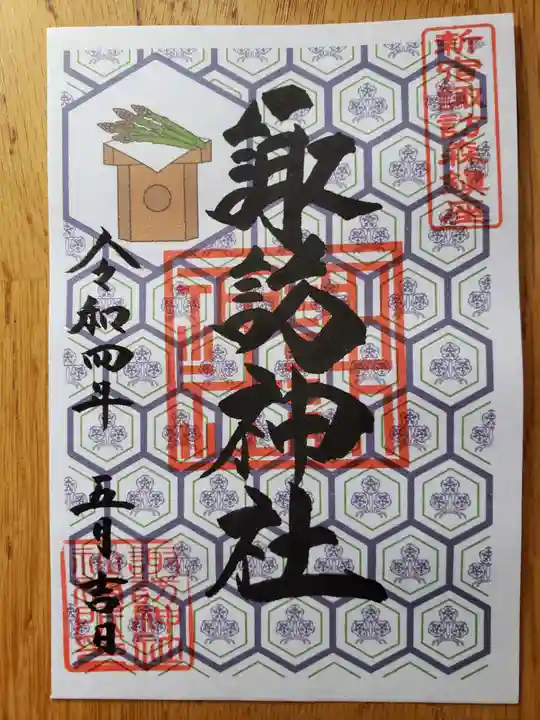 新宿諏訪森鎮座
諏訪神社
令和四年 五月吉日